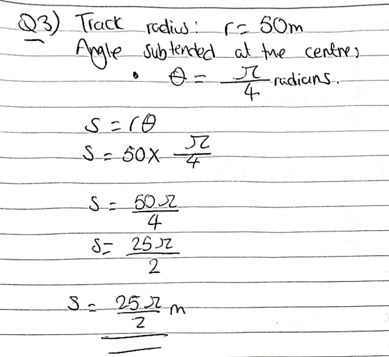 Q3) Track radius: r = 50m
Angle subtended at the centre;
• θ = π/4 radians.
s = rθ
s = 50 x π/4
s = 50π/4
s = 25π/2
s = 25π/2 m